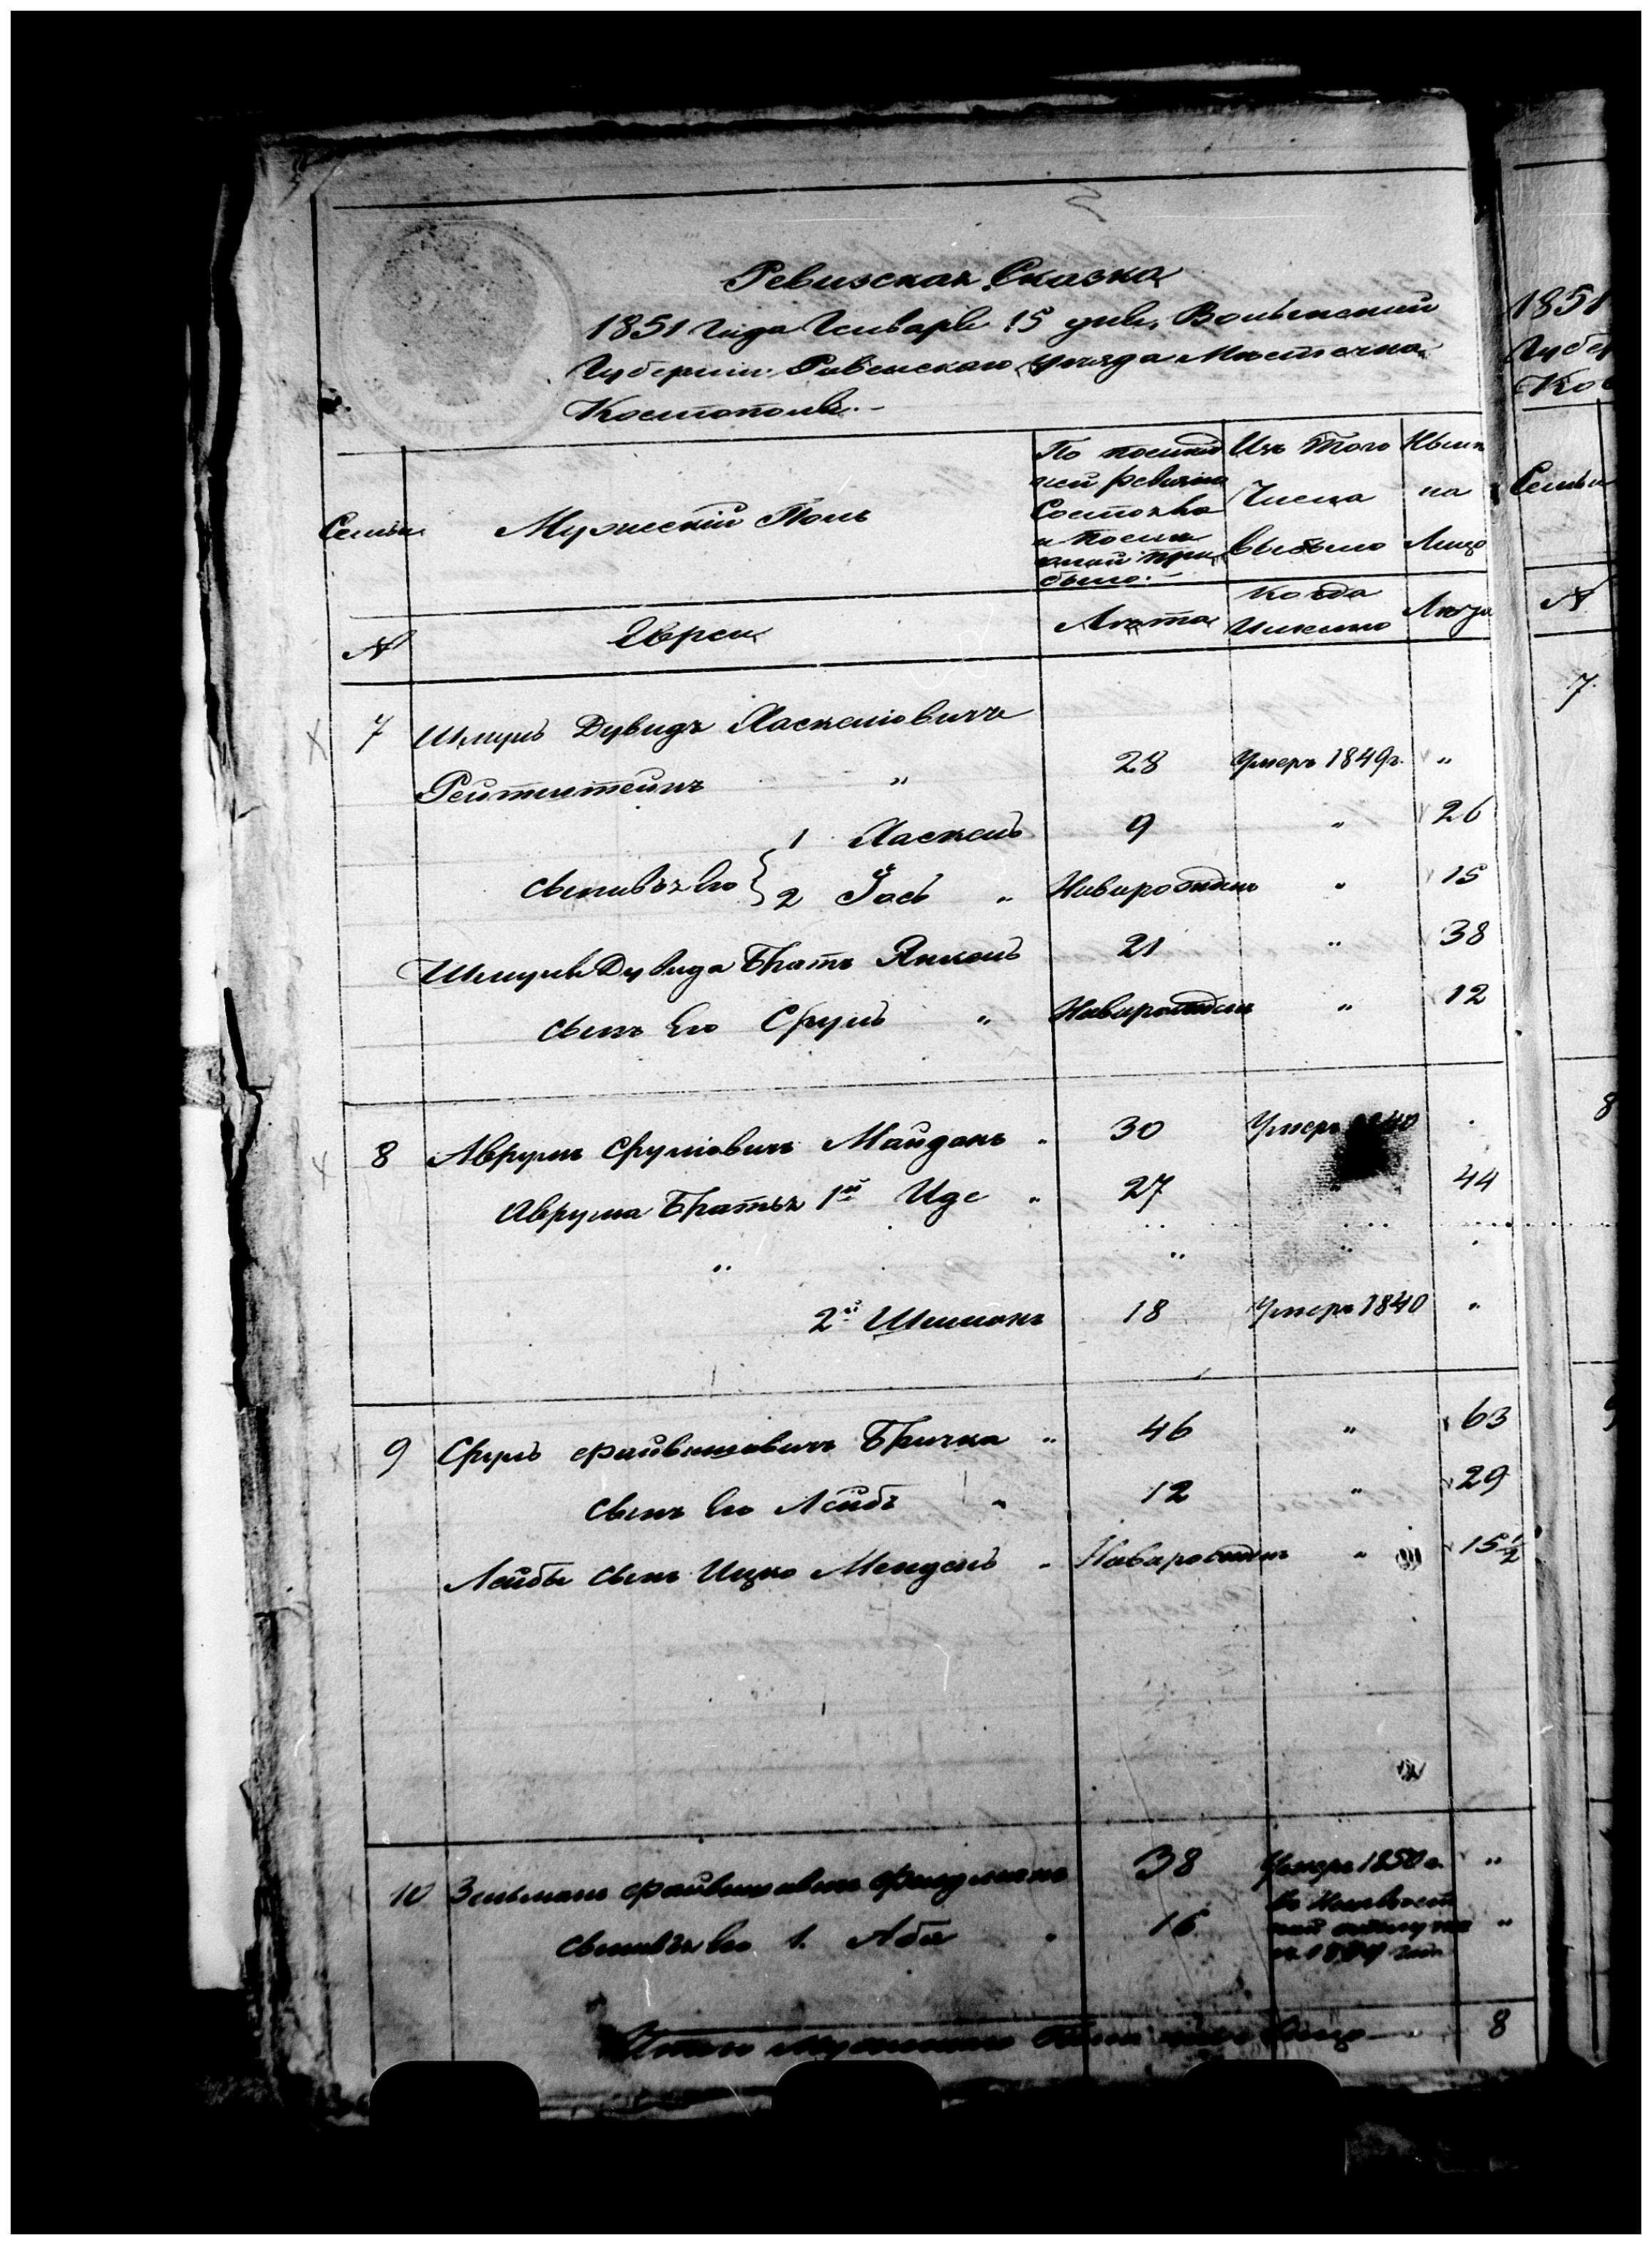 Ревизская Сказка
1851 года Генваря 15 дня, Волынской
Губернии Ровенскаго уезда Местечка
Костополя.-
Семьи
Мужескій Полъ
По послед
ней ревизіи
Состояло
и после
оной при
было.-
Изъ того
Числа
выбыло
Ныне
на
Лицо
№
Евреи
Лета
Когда
Именно
Лета
7 Шмуль Дувидъ Хаскелiовичъ
Рейтштейнъ " 28 Умеръ 1849г. "
1 Хаскель 9 " 26
сыновья Его
2 Іось " Новорожденъ " 15
Шмуля Дувида Братъ Янкель 21 " 38
сынъ Его Сруль " Новорожденъ " 12
8 Аврумъ Сруліовичъ Майданъ " 30 Умеръ 1840
Аврума Братья 1й Иде " 27 " 44
" " "
2й Шлиома 18 Умеръ 1840 "
9 Сруль Файвишовичъ Бричка " 46 " 63
сынъ Его Лейбъ " 12 " 29
Лейбы сынъ Ицко Мендель " Новорожденъ " 15½
10 Зельманъ Файвишовичъ 38 Умеръ 1850 г. "
сыновья Его 1. Аба " 16 "
Итого Мужескаго Пола на Лицо 8
1851
Губер
Кос
Семьи
№
7
8
9